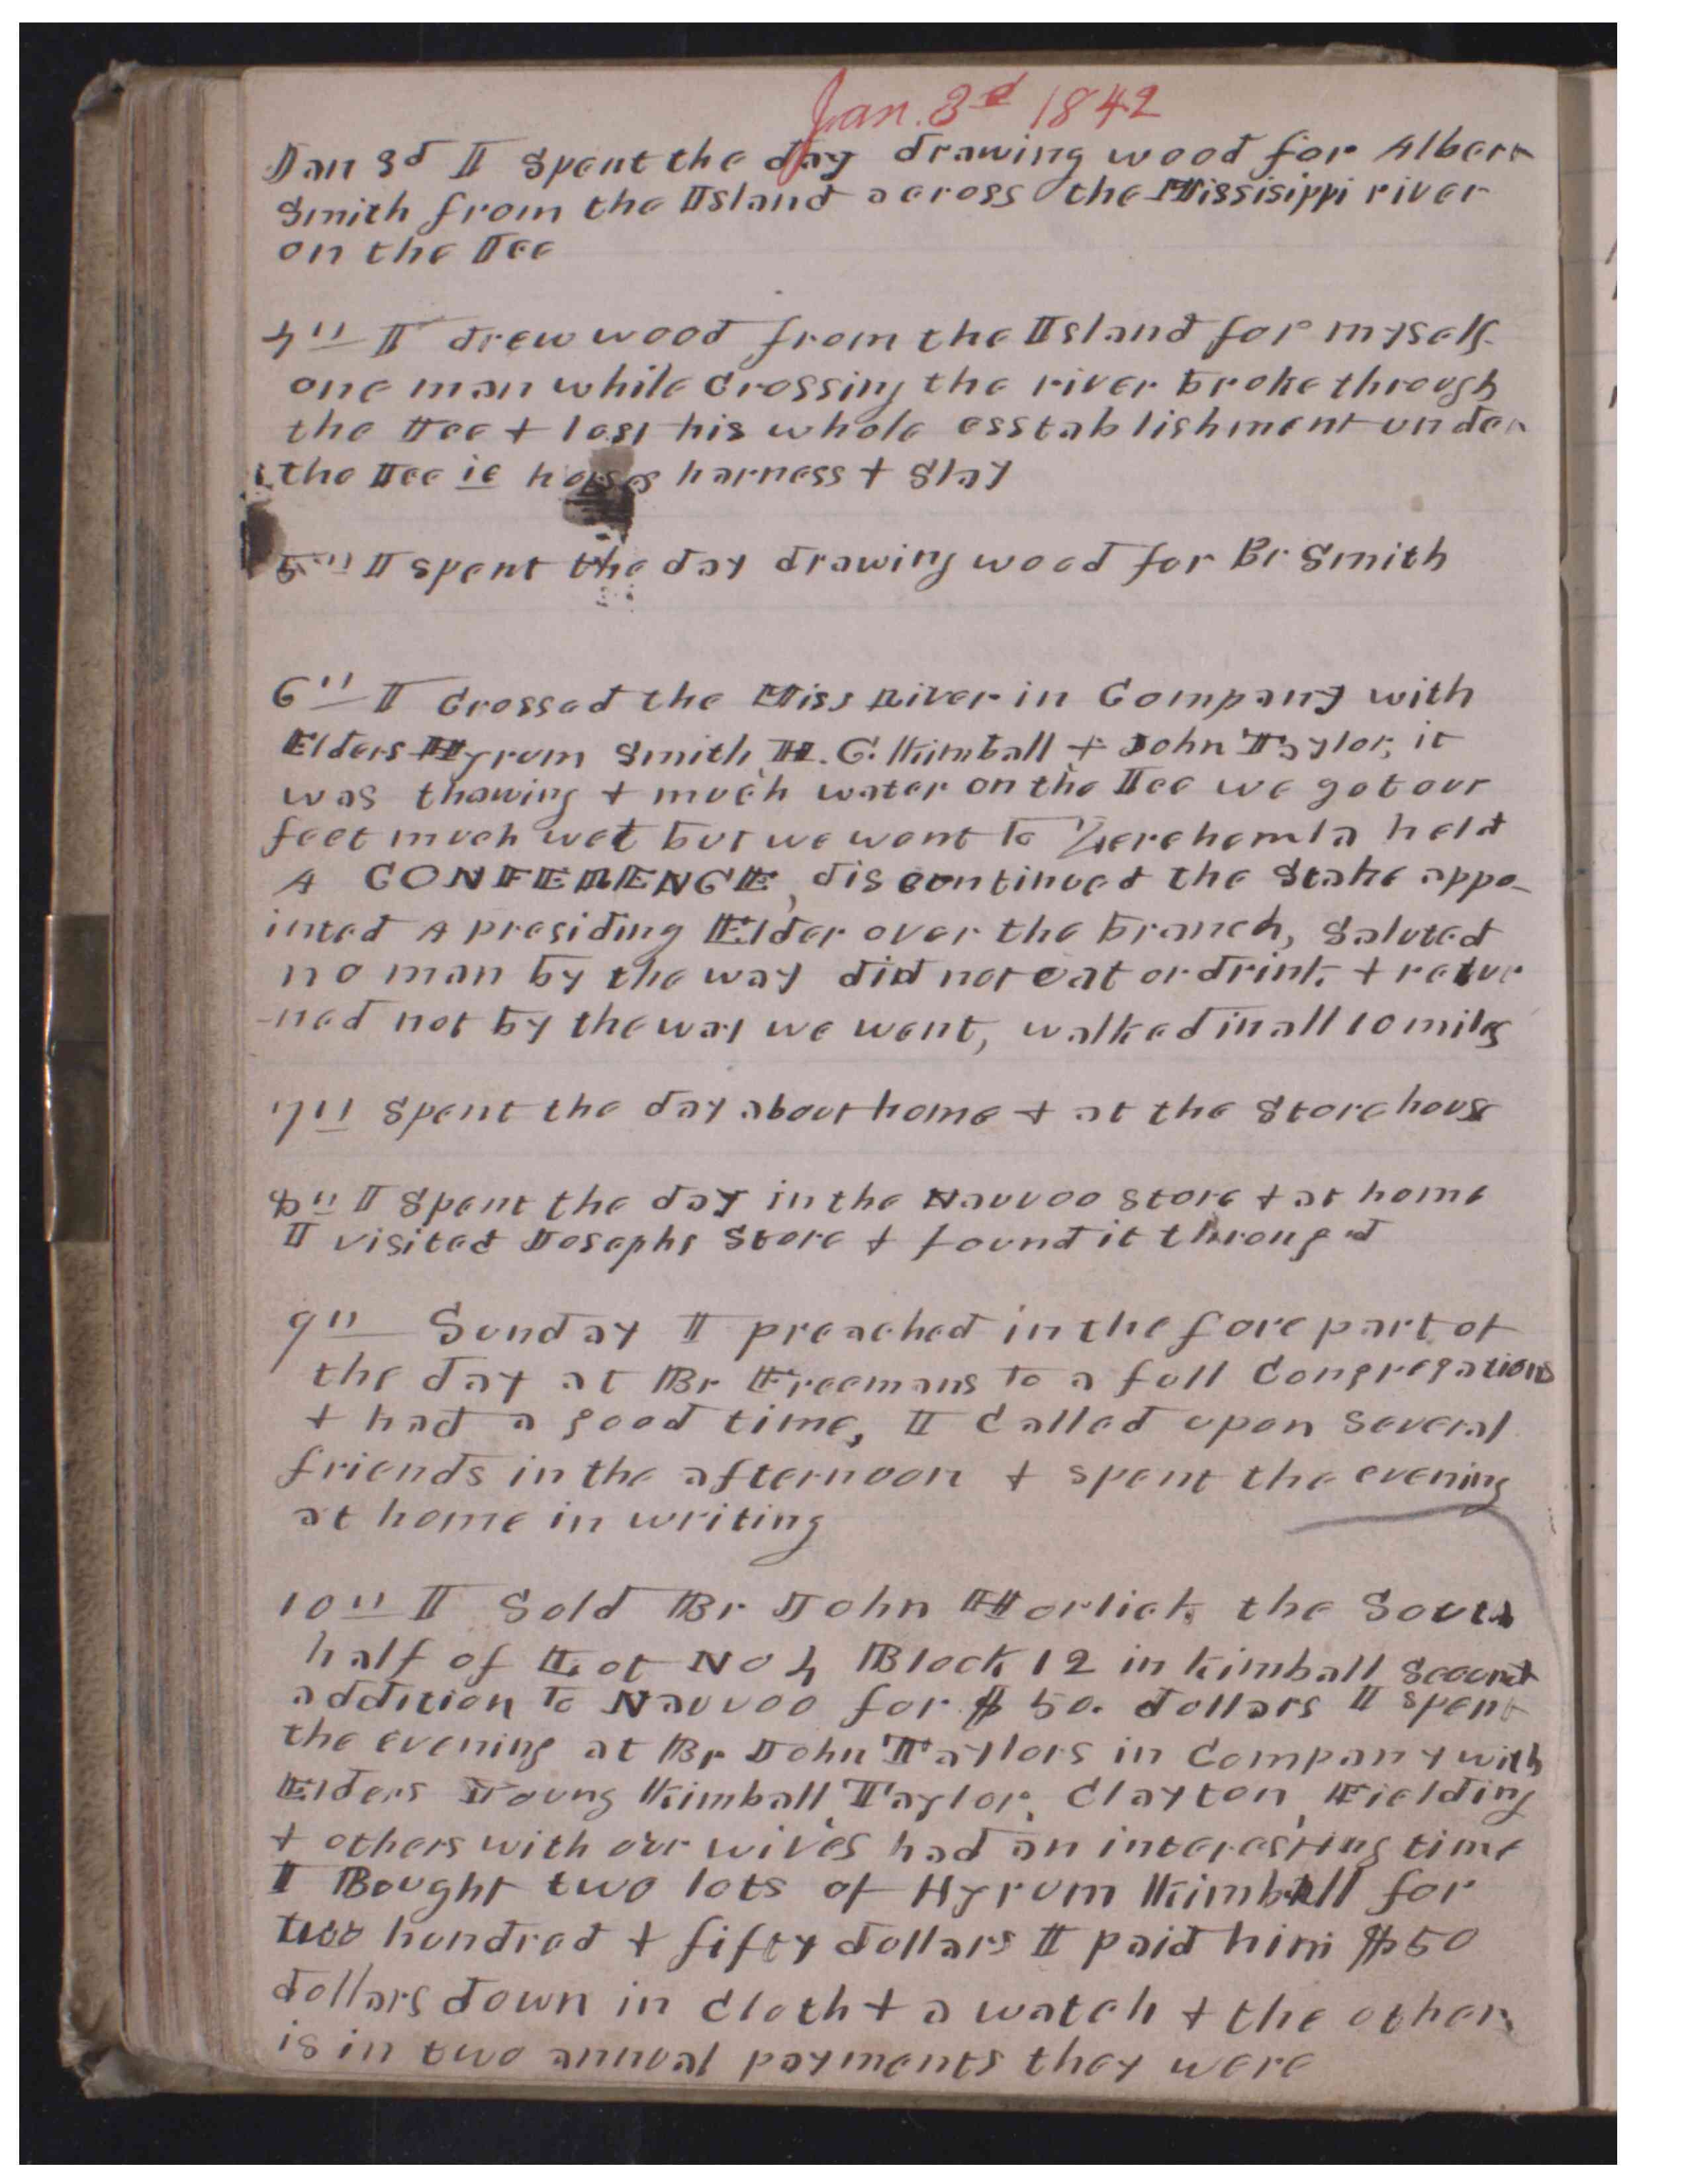 Jan. 3d 1842
Jan 3d I Spent the day drawing wood for Albert
Smith from the Island across the Missisippi river
on the Ice
4" I drew wood from the Island for myself
one man while Crossing the river broke through
the Ice + lost his whole esstablishment under
the Ice ie horses harness + Slay
5" I spent the day drawing wood for Br Smith
6" I Crossed the Miss River in Company with
Elders Hyrum Smith, H. C. Kimball + John Taylor, it
was thawing + much water on the Ice we got our
feet much wet but we went to Zerehemla held
A CONFERENCE, discontinued the Stake appo-
inted A presiding Elder over the branch, Saluted
no man by the way did not eat or drink + retur
-ned not by the way we went, walked in all 10 miles
7" Spent the day about home + at the Storehouse
8" I Spent the day in the Nauvoo Store + at home
I visited Josephs Store + found it thronged
9" Sunday I preached in the fore part of
the day at Br Freemans to a full Congregations
+ had a good time, I Called upon Several
friends in the afternoon + spent the evening
at home in writing
10" I Sold Br John Horlick the South
half of Lot No 4 Block 12 in Kimball Second
addition to Nauvoo for $50. dollars I spent
the evening at Br John Taylors in Company with
Elders Young Kimball, Taylor, Clayton, Fielding
+ others with our wives had an interesting time
I Bought two lots of Hyrum Kimball for
two hundred + fifty dollars I paid him $50
dollars down in Cloth + a watch + the other
is in two annual payments they were